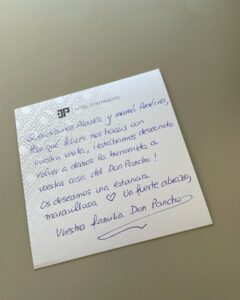 HOTEL DON PANCHO
Queridísimos Alaitz y mamá América,
¡Por qué felices nos hacéis con
vuestra visita, ¡estábamos deseando
volver a daros la bienvenida a
vuestra casa del Don Pancho!
Os deseamos una estancia
maravillosa ♡ Un fuerte abrazo,
Vuestra familia Don Pancho